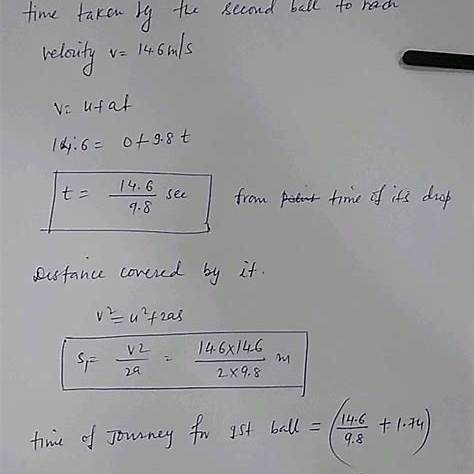 time taken by the second ball to reach
velocity v= 14.6 m/s
v= u+at
14.6 = 0+9.8 t
t = 14.6/9.8 sec from point time of its drop
Distance covered by it.
v²=u²+2as
S₁= v2/2a = 14.6×14.6/2×9.8 m
time of Journey for 1st ball = (14.6/9.8 + 1.74)